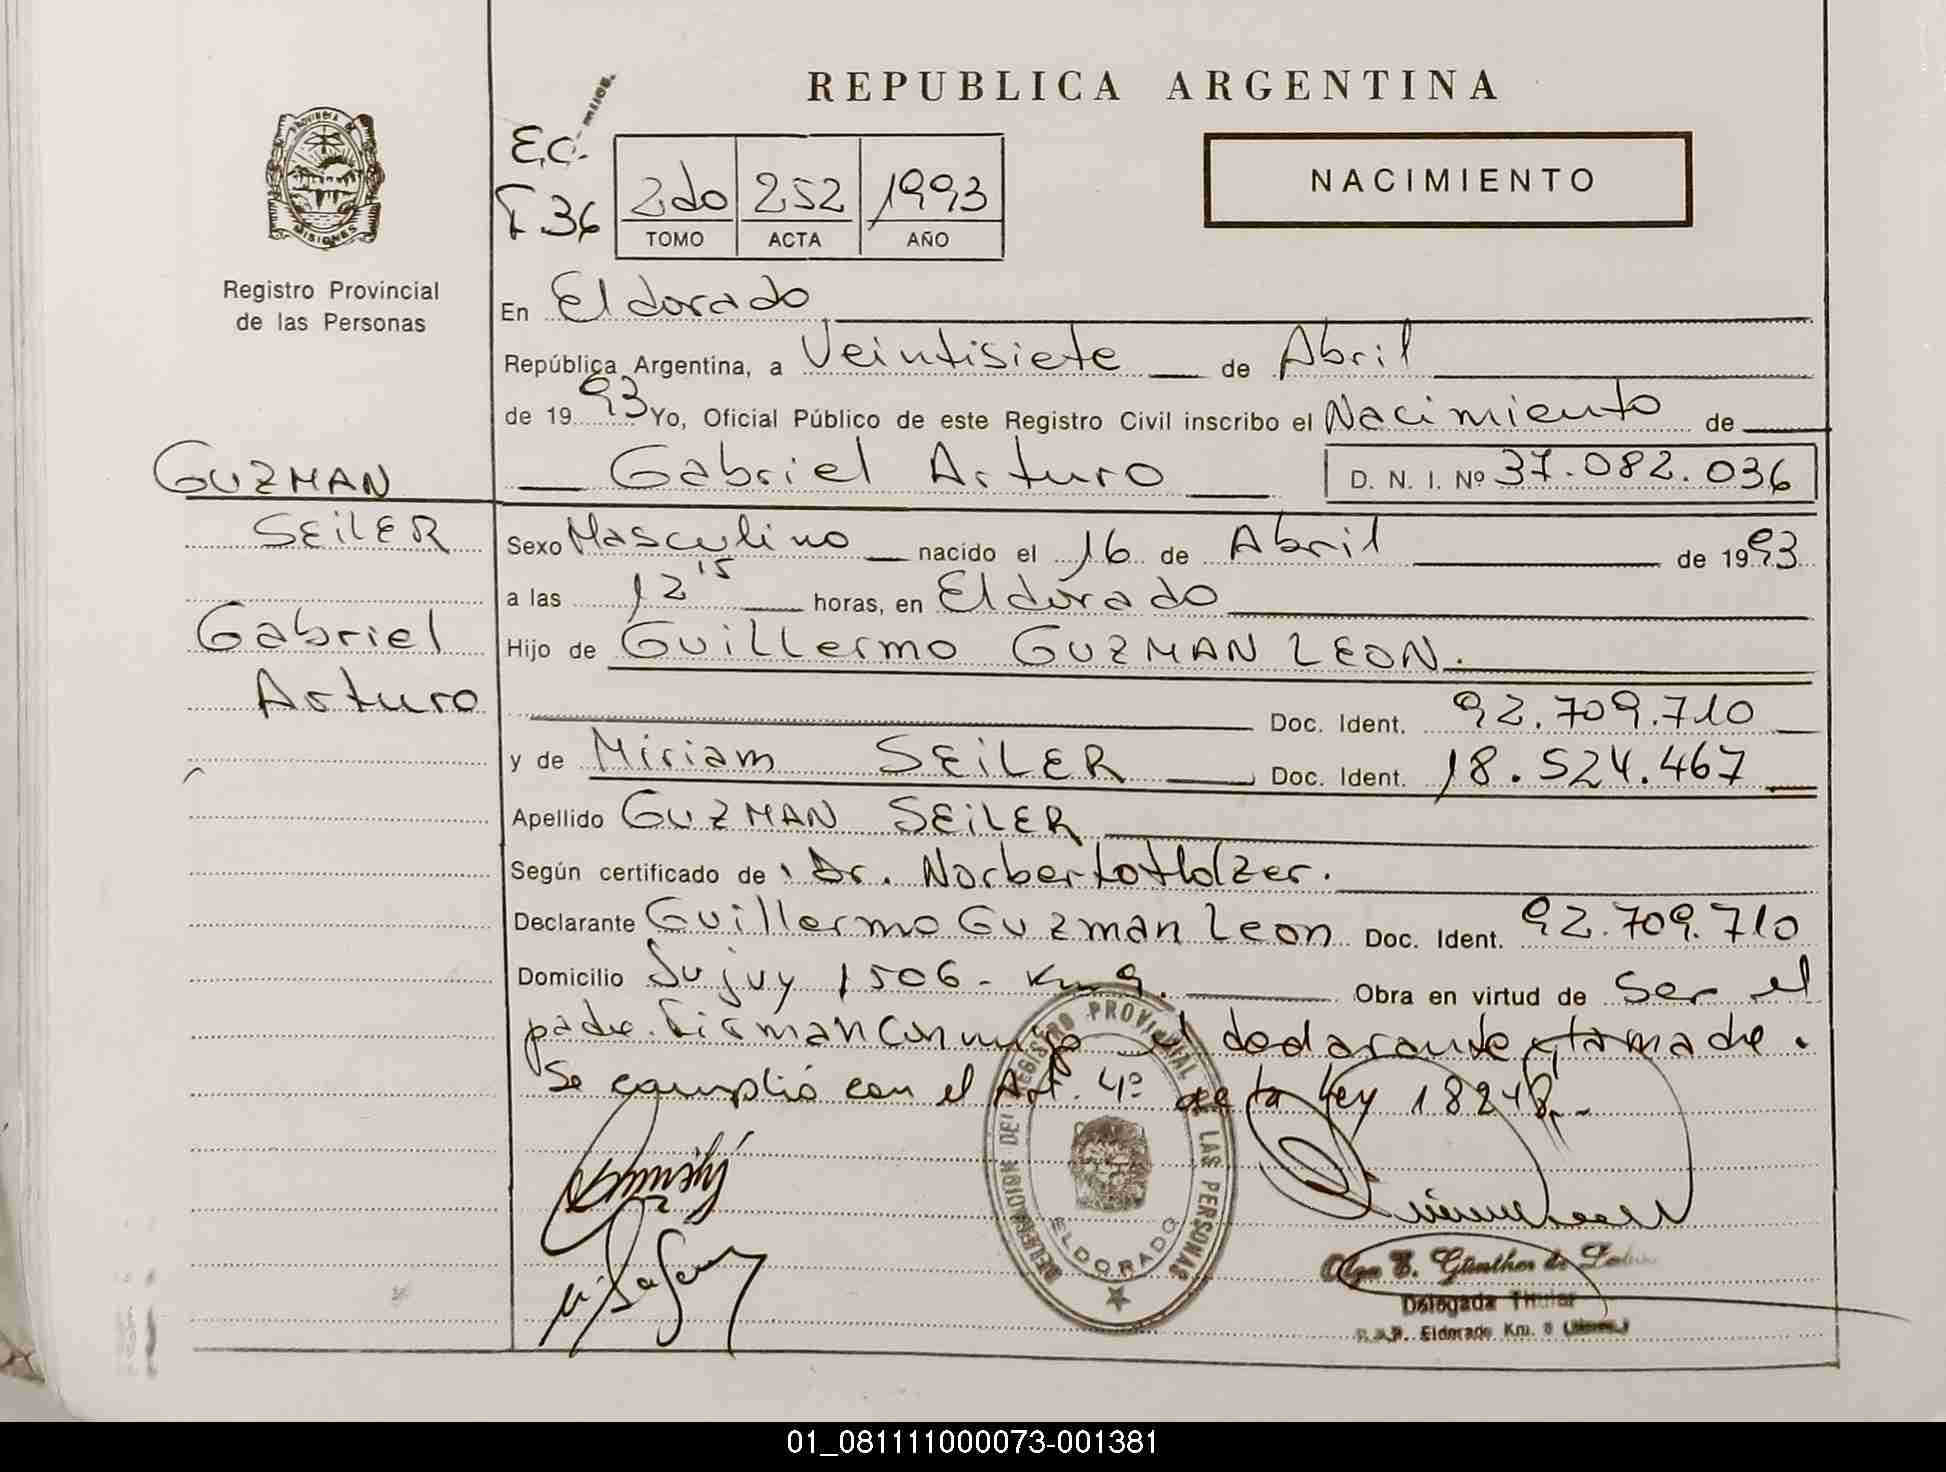 REPUBLICA ARGENTINA
NACIMIENTO
PROVINCIA DE
MISIONES
Registro Provincial
de las Personas
E.C.
F 36
2do 252 1993
TOMO ACTA AÑO
En Eldorado
República Argentina, a Veintisiete de Abril
de 19 93 Yo, Oficial Público de este Registro Civil inscribo el Nacimiento de
Gabriel Arturo D. N. I. Nº 37.082.036
GUZMAN
SEILER
Gabriel
Arturo
Sexo Masculino nacido el 16 de Abril de 1993
a las 12 15 horas, en Eldorado
Hijo de Guillermo GUZMAN LEON.
Doc. Ident. 92.709.710
y de Miriam SEILER Doc. Ident. 18.524.467
Apellido GUZMAN SEILER
Según certificado de Dr. Norberto Holzer.
Declarante Guillermo Guzman Leon Doc. Ident. 92.709.710
Domicilio Jujuy 1506 - Km 9. Obra en virtud de Ser el
padre. Firman conmigo el declarante y la madre.
Se cumplió con el Art. 4º de la ley 18248.-
DELEGACION DEL REGISTRO PROVINCIAL DE LAS PERSONAS
ELDORADO
Olga E. Günther de
Delegada Titular
Eldorado Km. 9
01_081111000073-001381